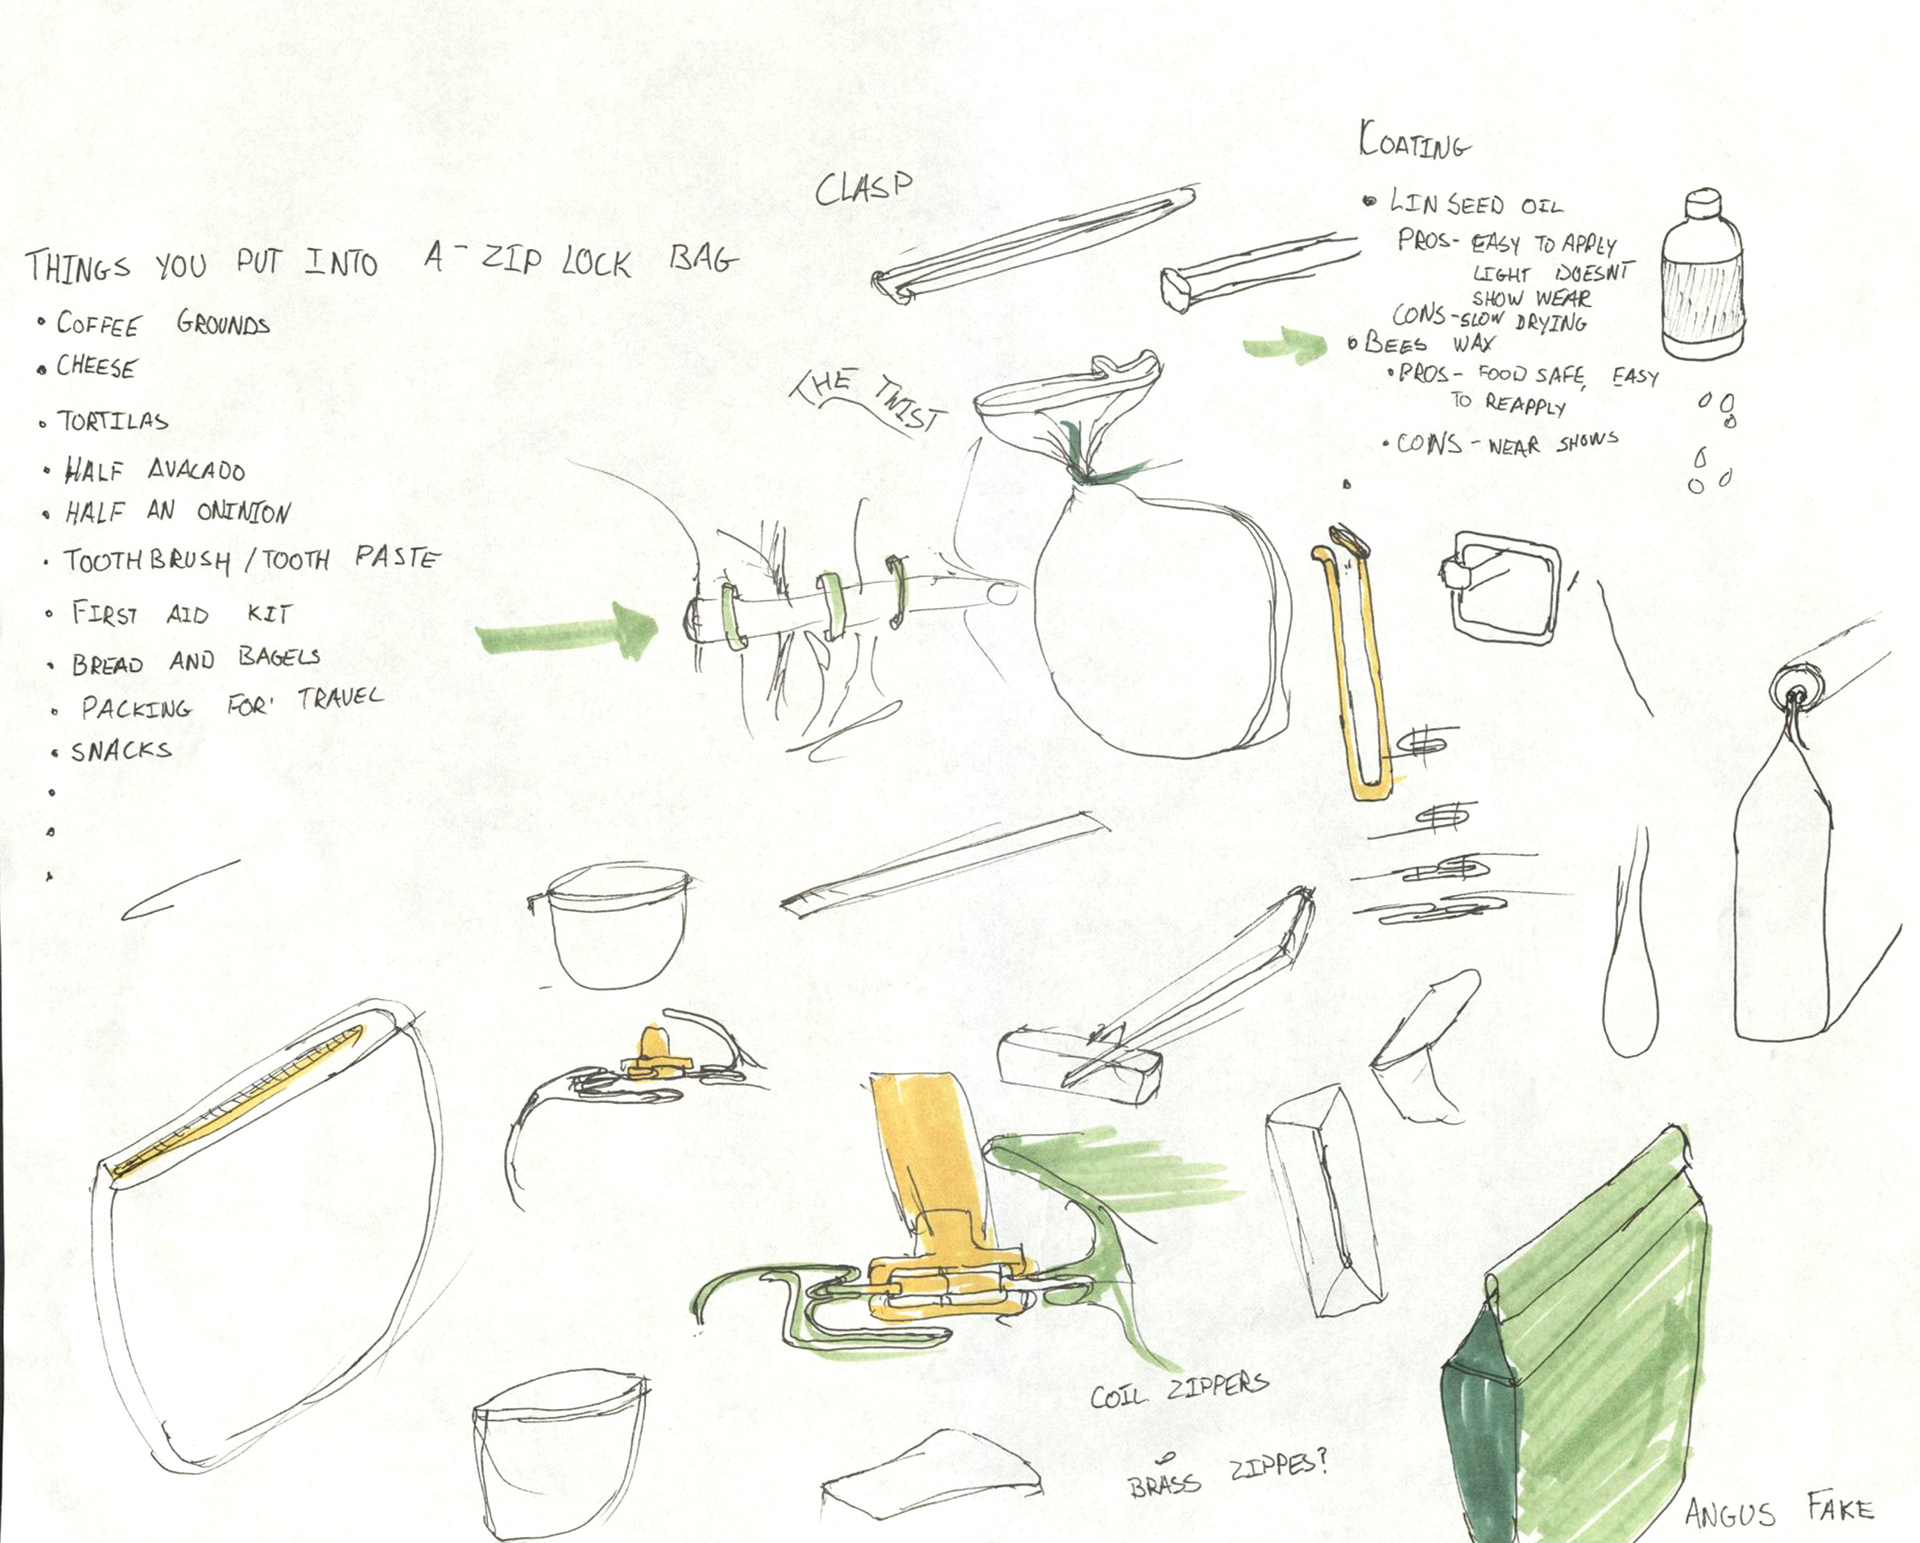 THINGS YOU PUT INTO A - ZIP LOCK BAG
• COFFEE GROUNDS
• CHEESE
• TORTILAS
• HALF AVACADO
• HALF AN ONINION
• TOOTHBRUSH / TOOTH PASTE
• FIRST AID KIT
• BREAD AND BAGELS
• PACKING FOR TRAVEL
• SNACKS
CLASP
THE TWIST
COATING
• LINSEED OIL
PROS- EASY TO APPLY
LIGHT DOESNT
SHOW WEAR
CONS-SLOW DRYING
• BEES WAX
• PROS- FOOD SAFE, EASY
TO REAPPLY
• CONS - WEAR SHOWS
COIL ZIPPERS
BRASS ZIPPES?
ANGUS FAKE